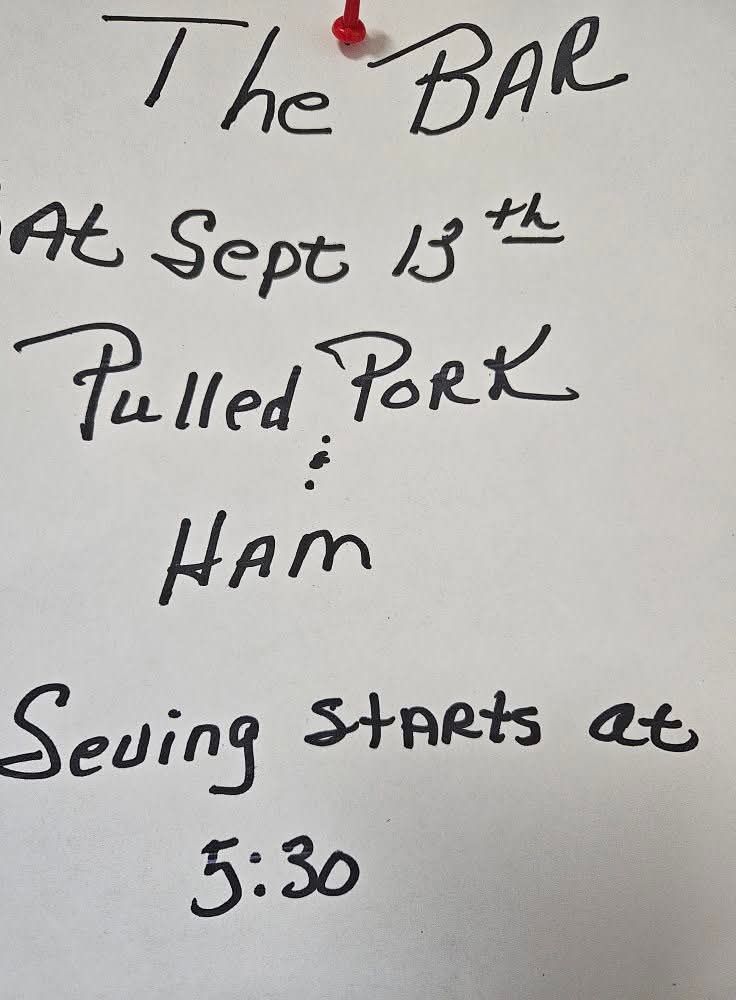 The BAR
At Sept 13th
Pulled PORK
&
HAM
Seving STARTS at
5:30